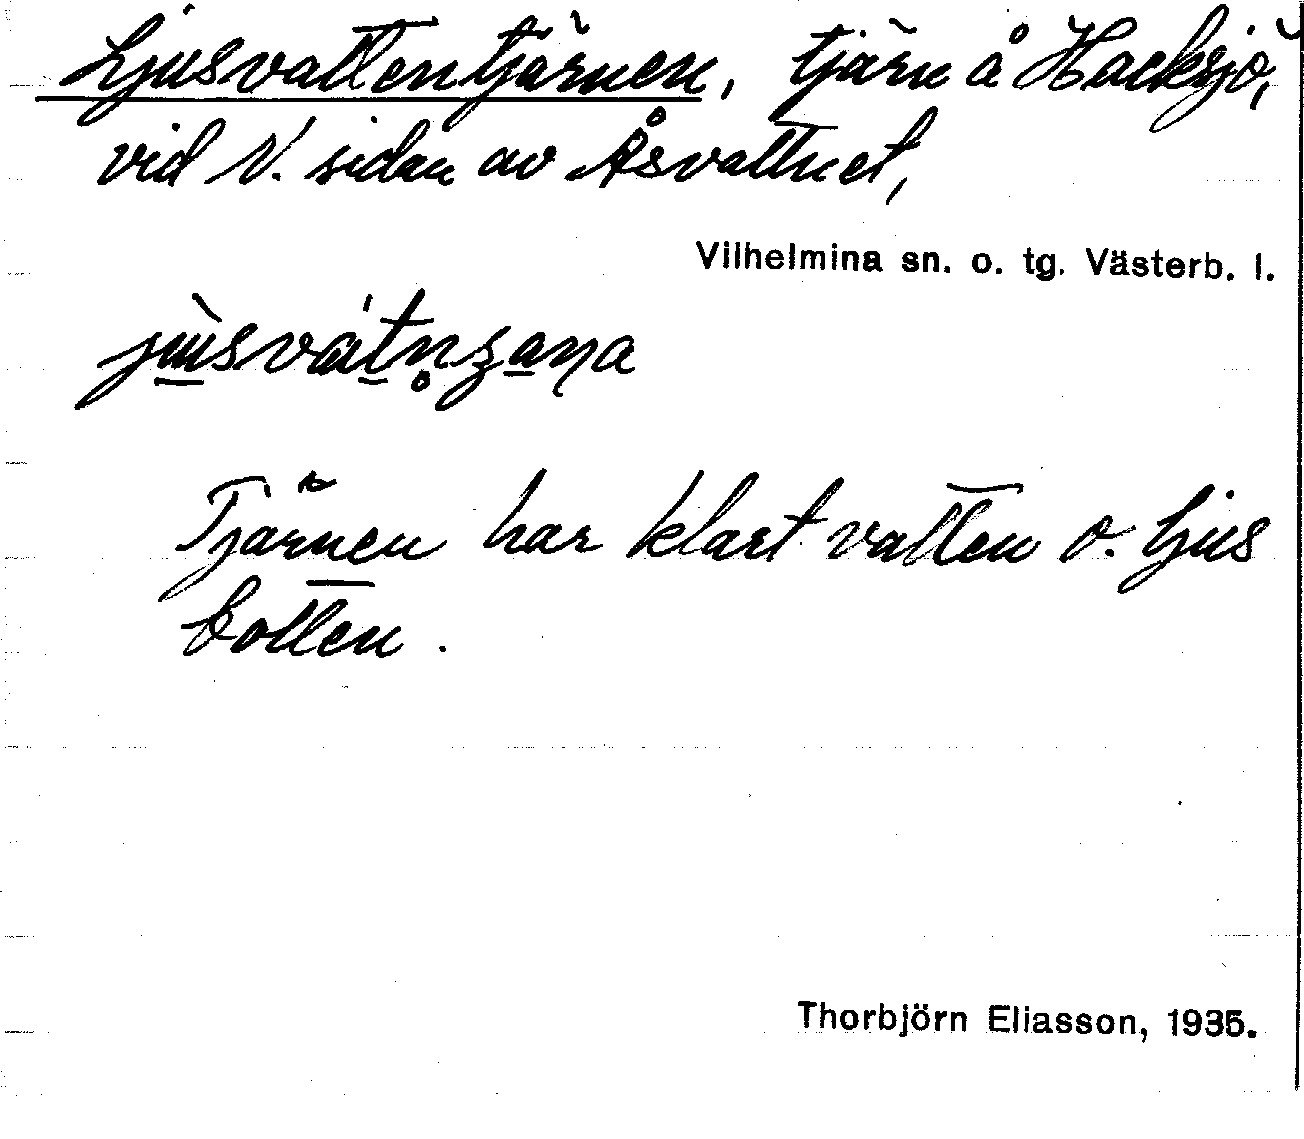 Ljusvattentjärnen, tjärn å Hacksjö,
vid V. sidan av Åsvattnet,
Vilhelmina sn. o. tg. Västerb. l.
Tjärnen har klart vatten o. ljus
botten.
Thorbjörn Eliasson, 1935.